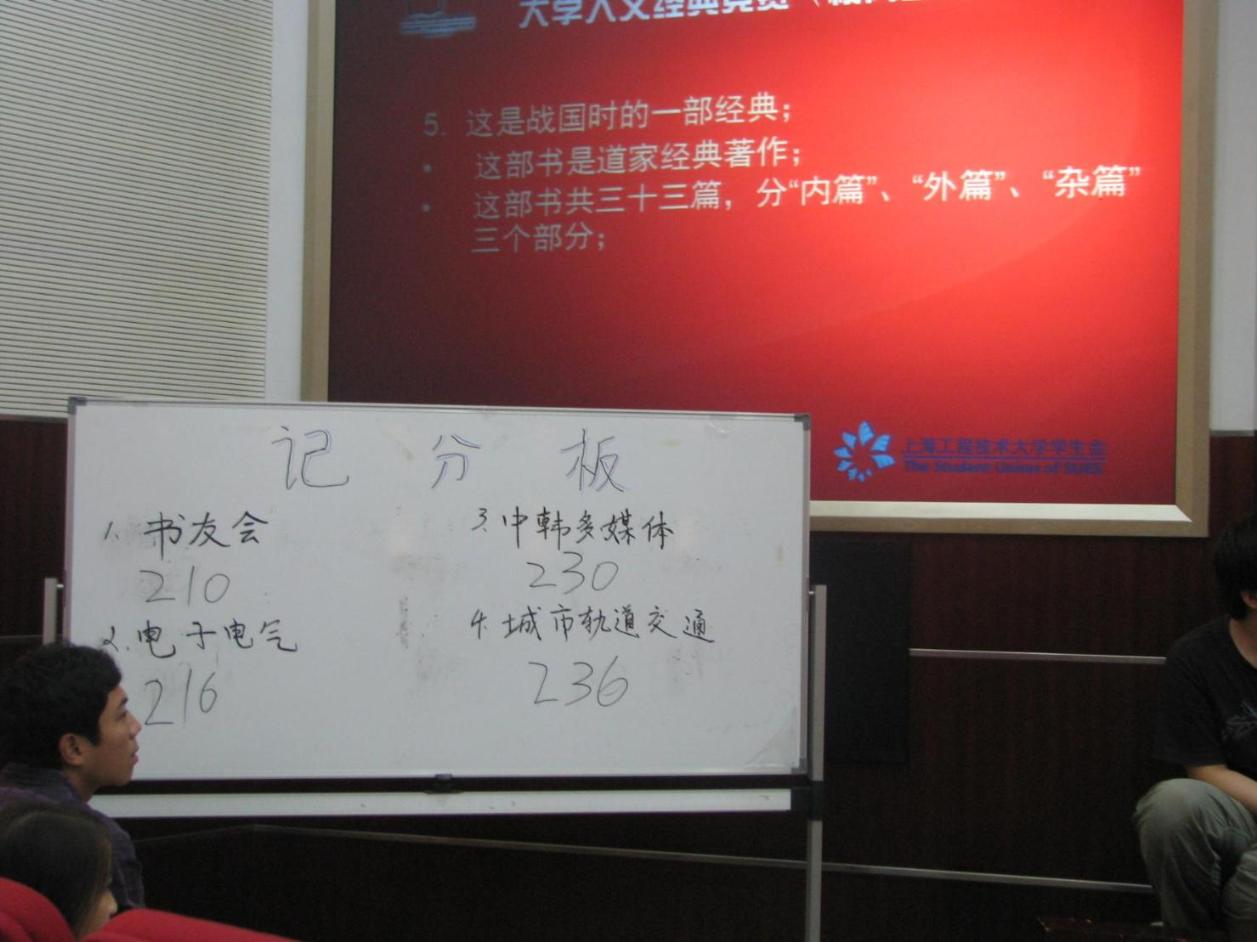 大学人文经典竞赛
5. 这是战国时的一部经典；
• 这部书是道家经典著作；
• 这部书共三十三篇，分“内篇”、“外篇”、“杂篇”
三个部分；
上海工程技术大学学生会
The Student Union of SUES
记分板
1. 书友会
210
2. 电子电气
216
3. 中韩多媒体
230
4. 城市轨道交通
236